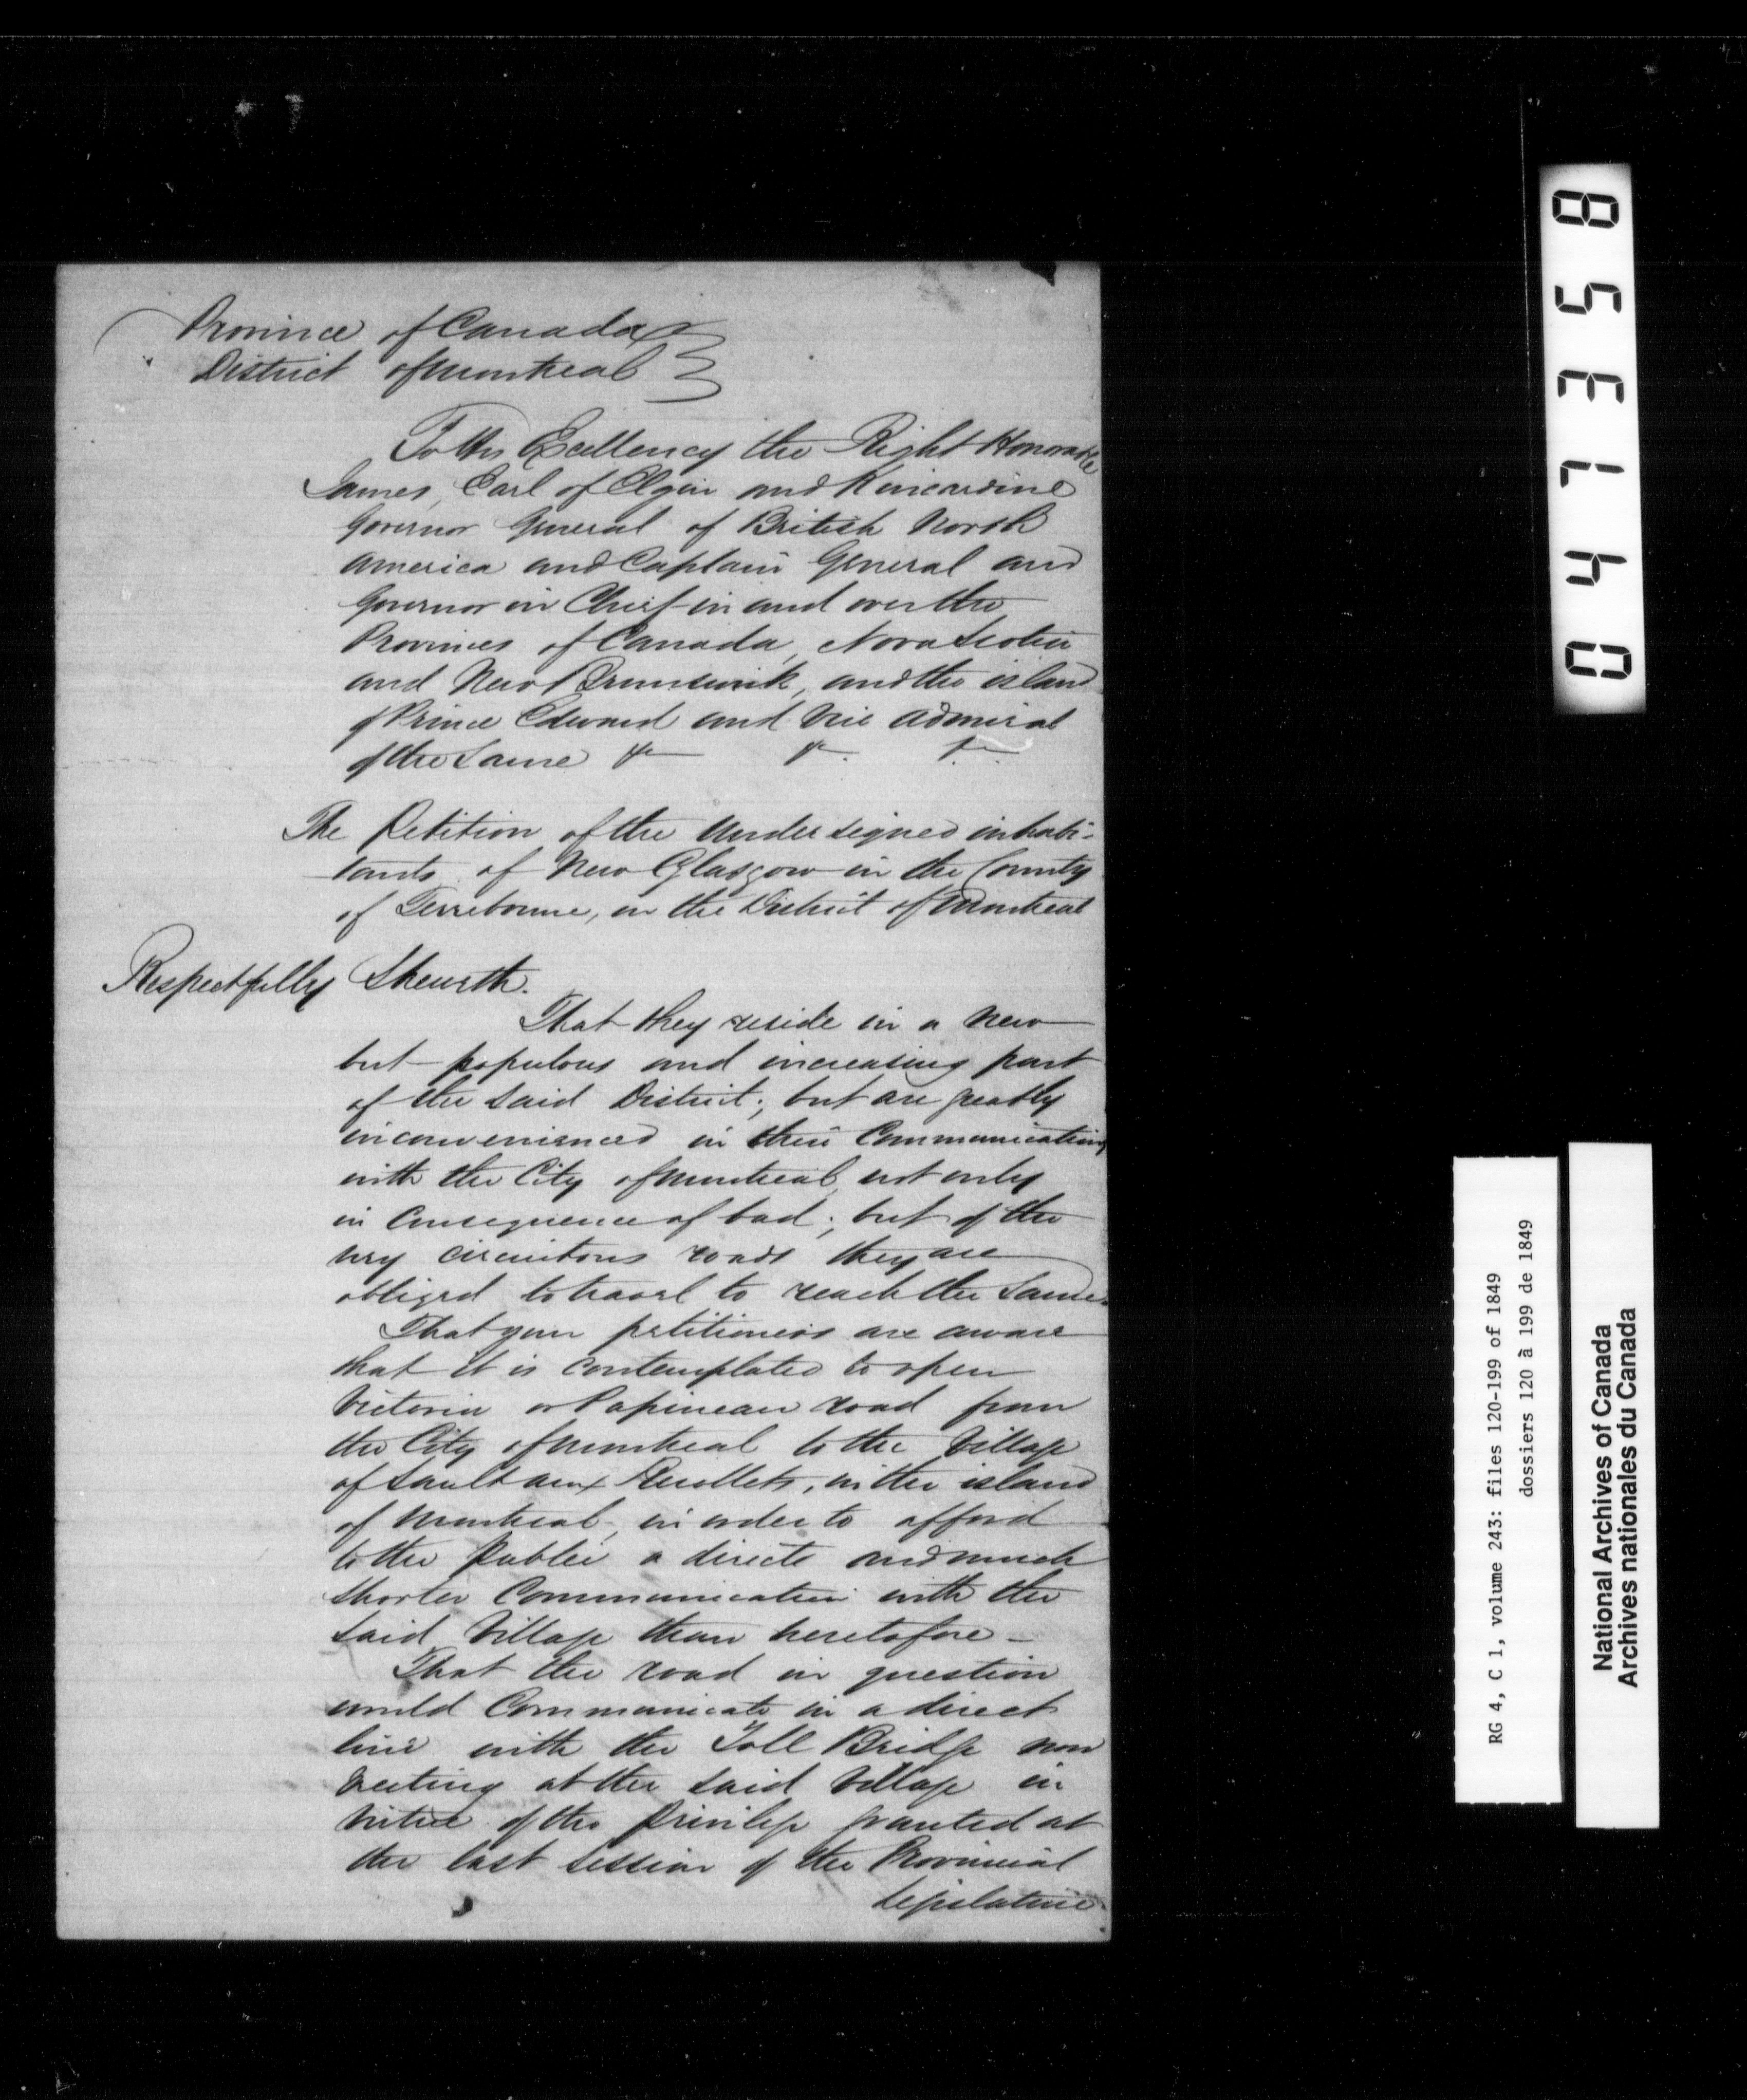 Province of Canada
District of Montreal
To His Excellency the Right Honorable
James, Earl of Elgin and Kincardine
Governor General of British North
America and Captain General and
Governor in Chief in and over the
Provinces of Canada, Nova Scotia
and New Brunswick, and the island
of Prince Edward and Vice Admiral
of the Same &c &c &c
The Petition of the Undersigned inhabi-
tants of New Glasgow in the County
of Terrebonne, in the District of Montreal
Respectfully Sheweth.
That they reside in a New
but populous and increasing part
of the said District; but are greatly
inconvenienced in their Communication
with the City of Montreal, not only
in Consequence of bad; but of the
very circuitous roads they are
obliged to travel to reach the Same.
That your petitioners are aware
that it is contemplated to open
Victoria or Papineau road from
the City of Montreal to the Village
of Sault aux Recollets, in the island
of Montreal, in order to afford
to the Public a directe and much
shorter Communication with the
said Village than heretofore –
That the road in question
would Communicate in a direct
line with the Toll Bridge now
at the said Village in
virtue of the privilege granted at
the last session of the Provincial
Legislature
047358
RG 4, C 1, volume 243: files 120-199 of 1849
dossiers 120 à 199 de 1849
National Archives of Canada
Archives nationales du Canada